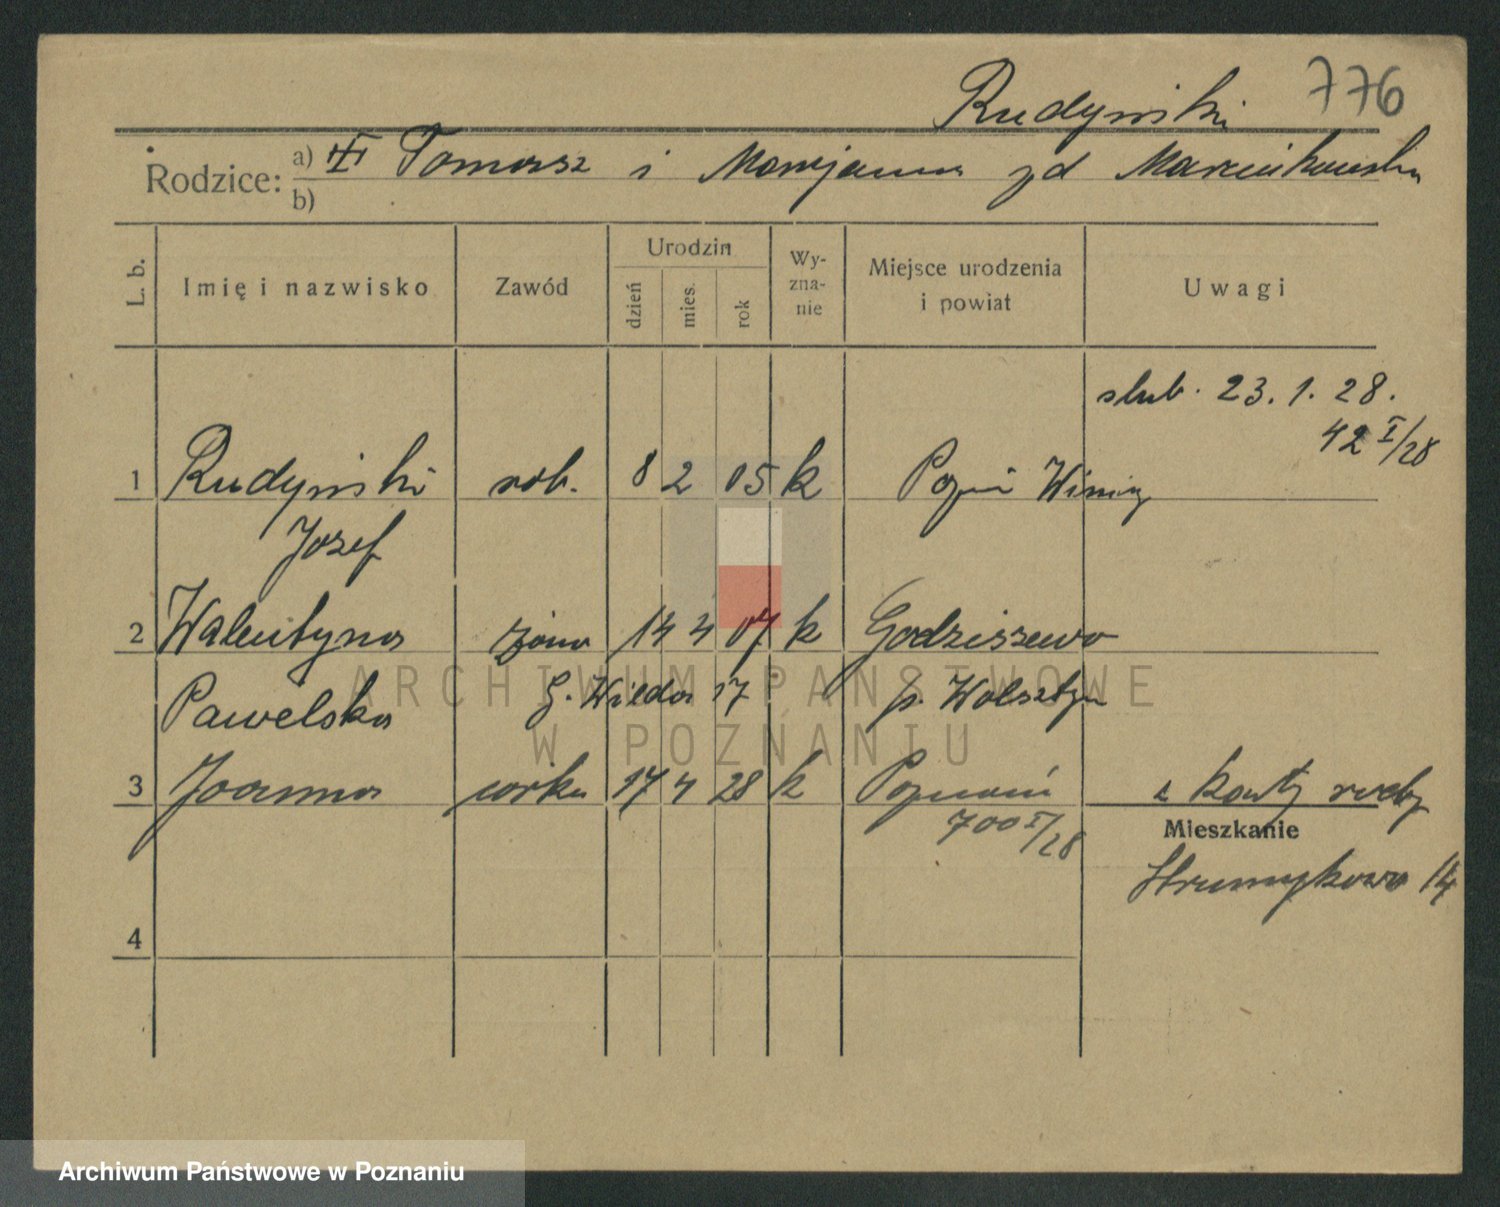 Rudyński 776
Rodzice: a) III Tomasz i Maryanna zd Marcinkowska
b)
L. b. Imię i nazwisko Zawód Urodzin dzień mies. rok Wy-zna-nie Miejsce urodzenia i powiat Uwagi
ślub. 23. 1. 28.
42 I/28
1 Rudyński rob. 8 2 05 k Pozn Winiary
Józef
2 Walentyna żona 14 4 07 k Godziszewo
Pawelska G. Wilda 17 p. Wolsztyn
3 Joanna córka 17 4 28 k Poznań z karty rodz
700 I/28
Mieszkanie
Strumykowa 14
4
ARCHIWUM PAŃSTWOWE
W POZNANIU
Archiwum Państwowe w Poznaniu